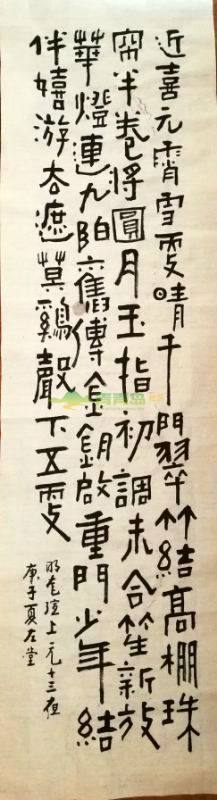 近喜元霄雪更晴千門翠竹結高棚珠
帘半卷將圓月玉指初調未合笙新放
華燈連九陌舊傳金鑰啟重門少年結
伴嬉游去遮莫鷄聲下五更
明毛澄上元十三夜
庚子夏左堂